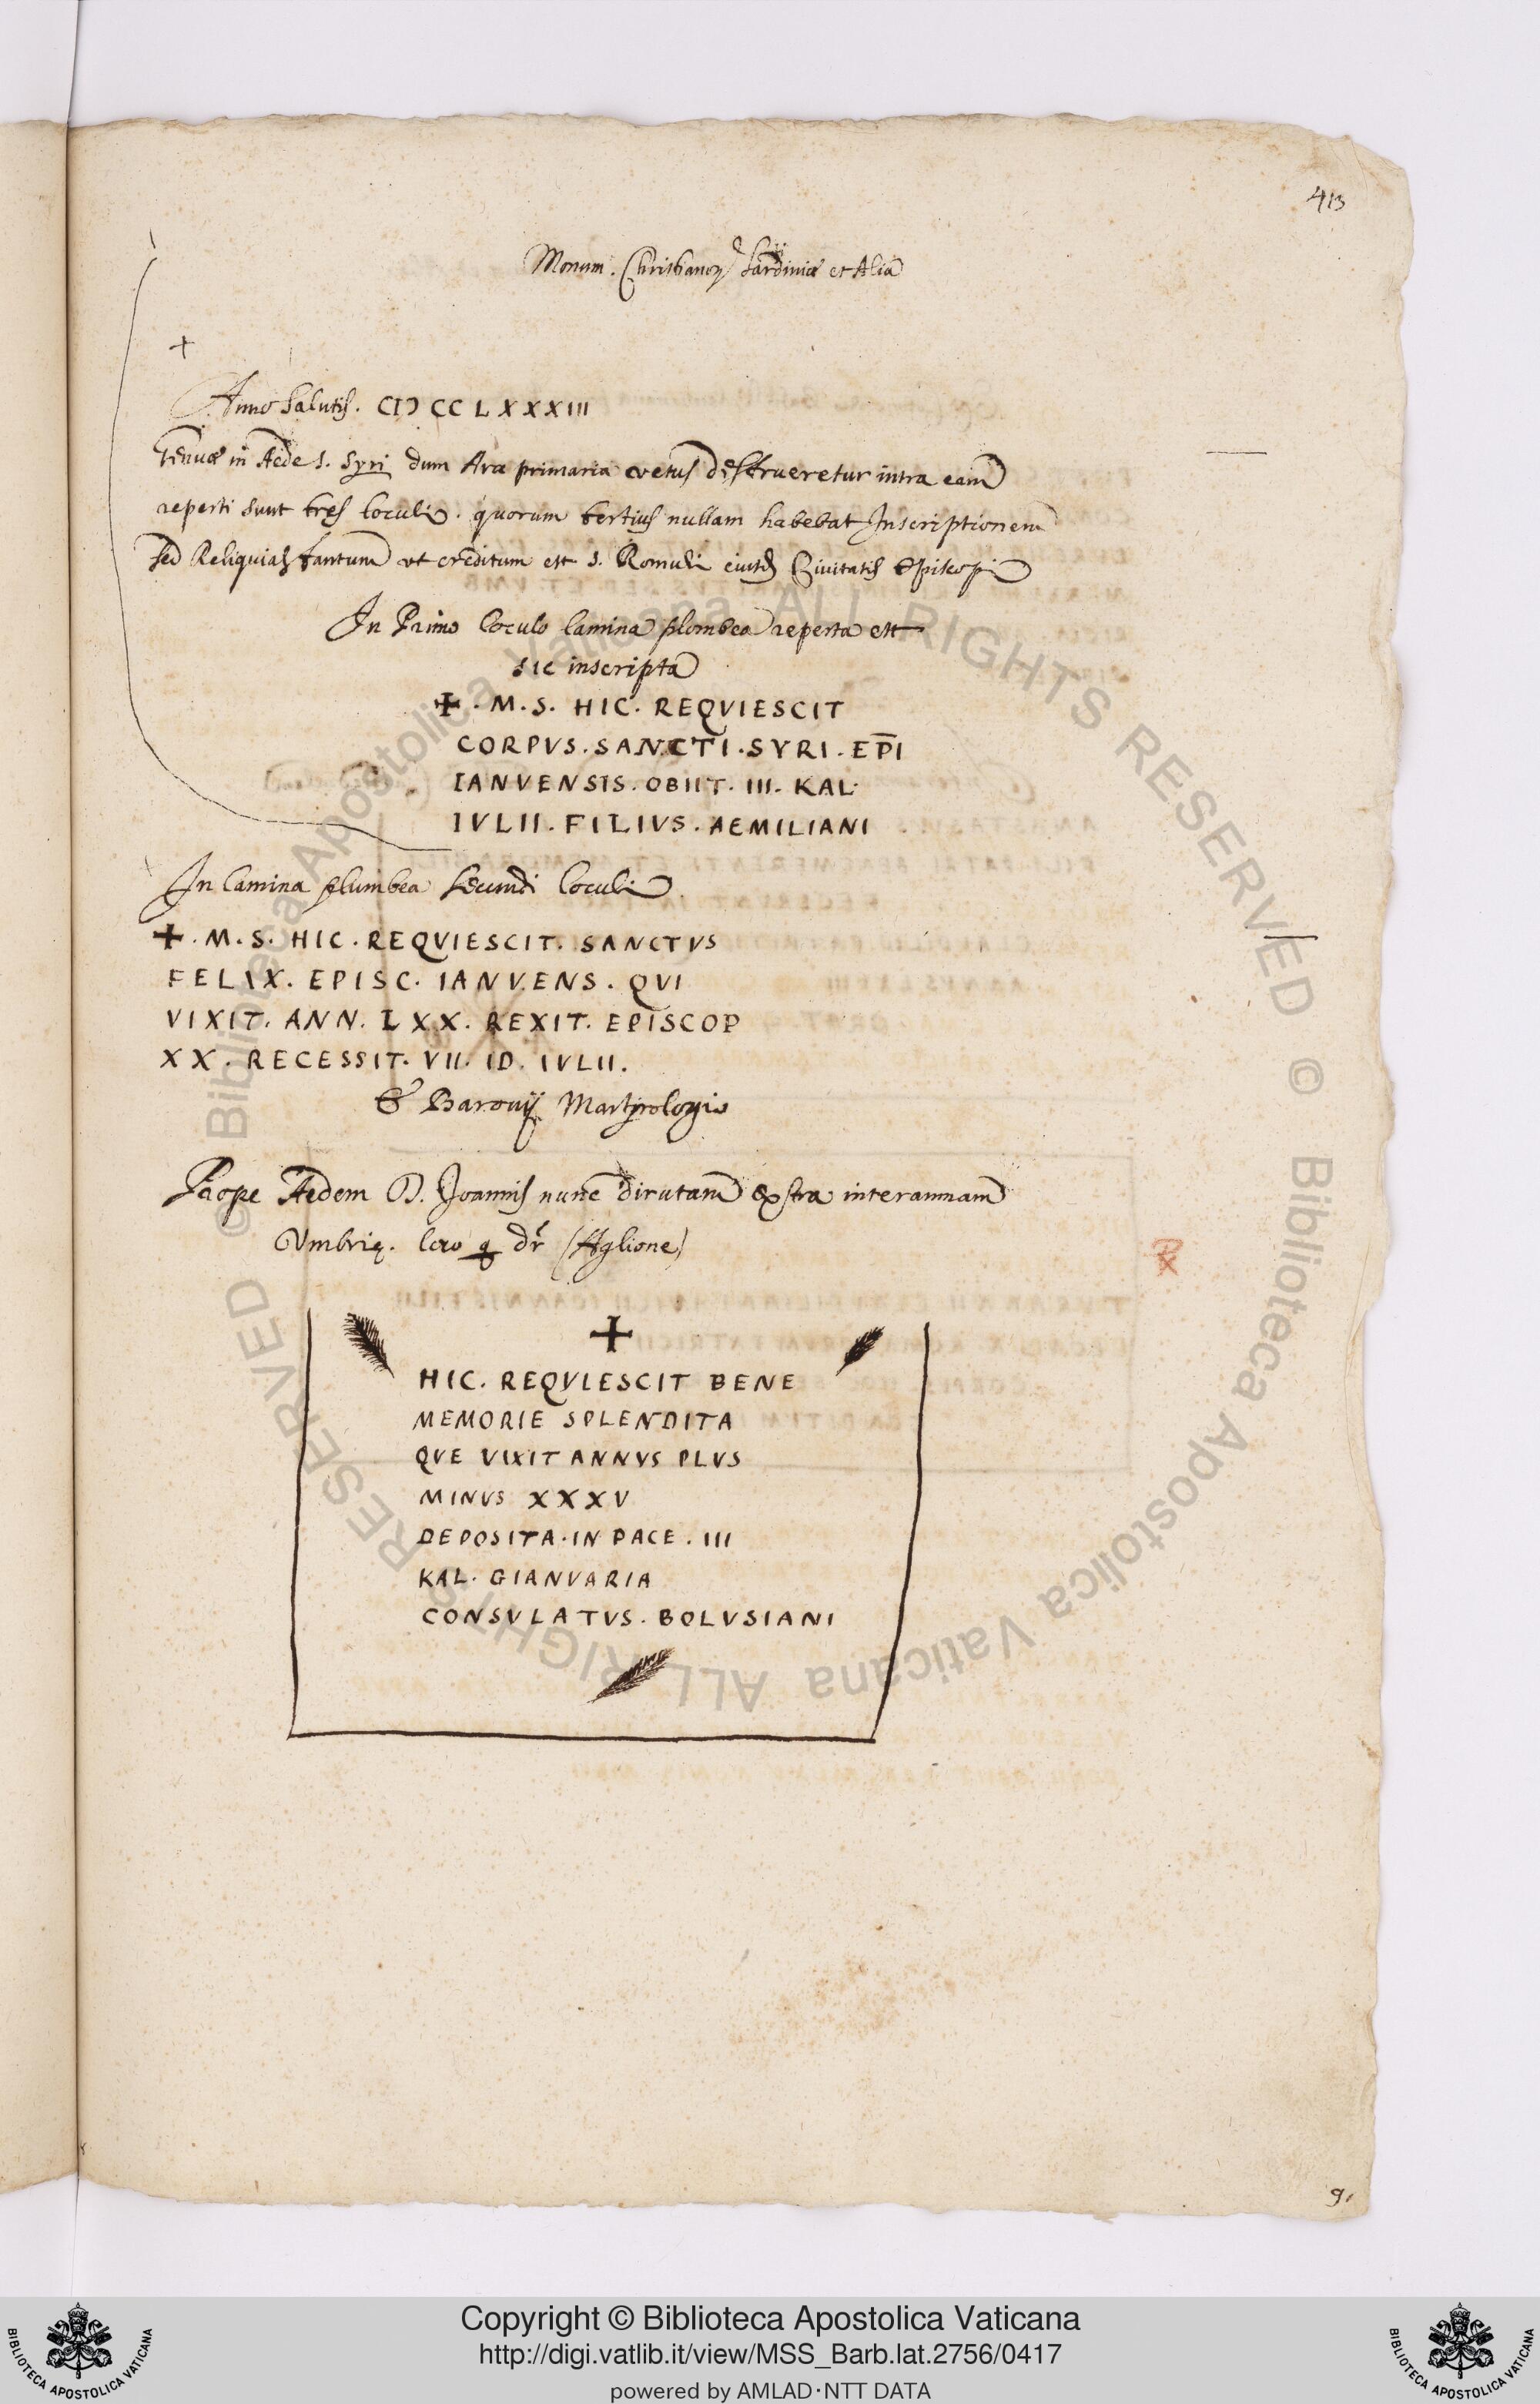 413
Monum. Christianoꝝ Sardiniæ et Alia
+
Anno Salutis. CIↃ CC LXXXIII
Genuæ in Aede S. Syri dum Ara primaria vetus destrueretur intra eam
reperti sunt tres loculi. quorum tertius nullam habebat Inscriptionem
sed Reliquias tantum ut creditum est S. Romuli eiusd Civitatis Episcopi
In Primo loculo lamina plombea reperta est
sic inscripta
✠ . M. S. HIC. REQVIESCIT
CORPVS. SANCTI. SYRI. EP̅I
IANVENSIS. OBIIT. III. KAL.
IVLII. FILIVS. AEMILIANI
In lamina plumbea secundi loculi
✠ . M. S. HIC. REQVIESCIT. SANCTVS
FELIX. EPISC. IANVENS. QVI
VIXIT. ANN. LXX. REXIT. EPISCOP
XX. RECESSIT. VII. ID. IVLII.
Baronij Martyrologio
Prope Aedem D. Joannis nunc dirutam extra interamnam
Vmbrię. loco q dr (Aglione)
+
HIC. REQVIESCIT BENE
MEMORIE SPLENDITA
QVE VIXIT ANNVS PLVS
MINVS XXXV
DEPOSITA. IN PACE. III
KAL. GIANVARIA
CONSVLATVS. BOLVSIANI
9.
© Biblioteca Apostolica Vaticana ALL RIGHTS RESERVED © Biblioteca Apostolica Vaticana ALL RIGHTS RESERVED
Copyright © Biblioteca Apostolica Vaticana
http://digi.vatlib.it/view/MSS_Barb.lat.2756/0417
powered by AMLAD·NTT DATA
BIBLIOTECA APOSTOLICA VATICANA
BIBLIOTECA APOSTOLICA VATICANA